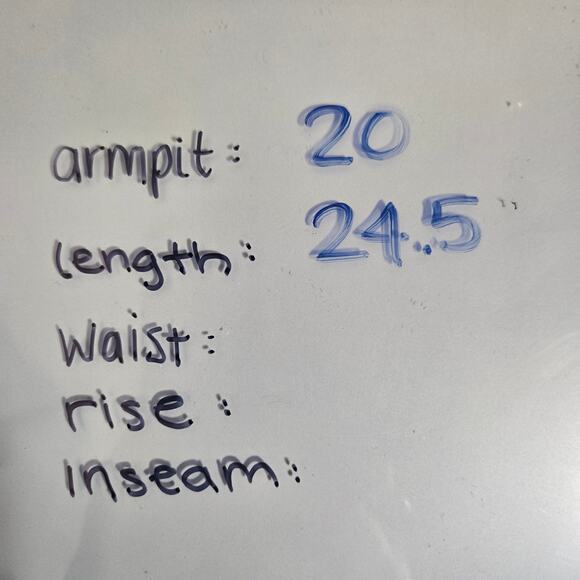 armpit: 20
length: 24.5
waist:
rise:
inseam: